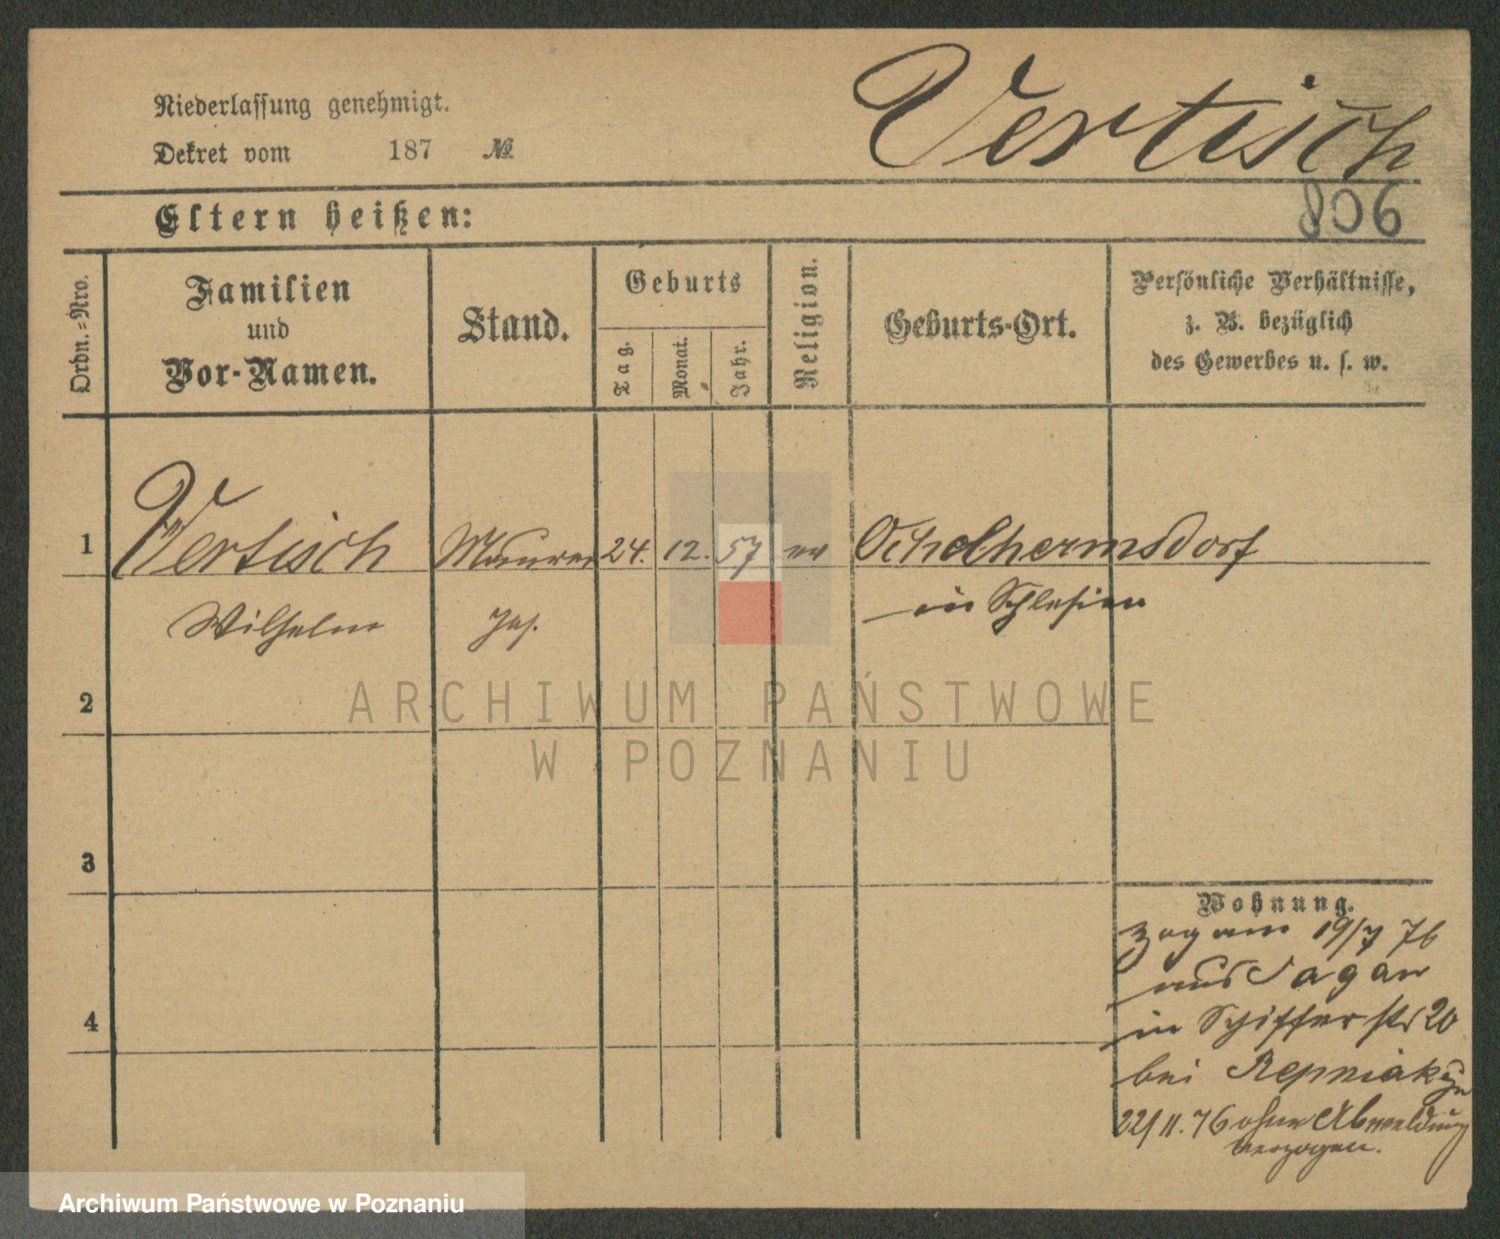 Niederlassung genehmigt.
Dekret vom 187 №
Vertisch
806
Eltern heißen:
Ordn.-Nro.
Familien
und
Vor-Namen.
Stand.
Geburts
Tag.
Monat.
Jahr.
Religion.
Geburts-Ort.
Persönliche Verhältnisse,
z. B. bezüglich
des Gewerbes u. s. w.
1 Vertisch Maurer 24. 12. 57 ev Ochelhermsdorf
Wilhelm in Schlesien
2
3
4
Wohnung.
Zog am 19/7 76
aus Sagan
in Schifferstr 20
bei Repniak
22/11.76 ohne Abmeldung
verzogen.
ARCHIWUM PAŃSTWOWE
W POZNANIU
Archiwum Państwowe w Poznaniu